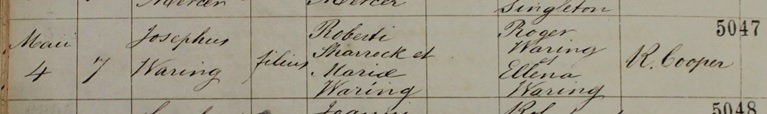 Mercer Mercer Singleton
5047
Maii Josephus Roberti Roger
4 7 Waring filius Sharrock et Waring R. Cooper
Mariæ et
Waring Ellena
Waring
5048